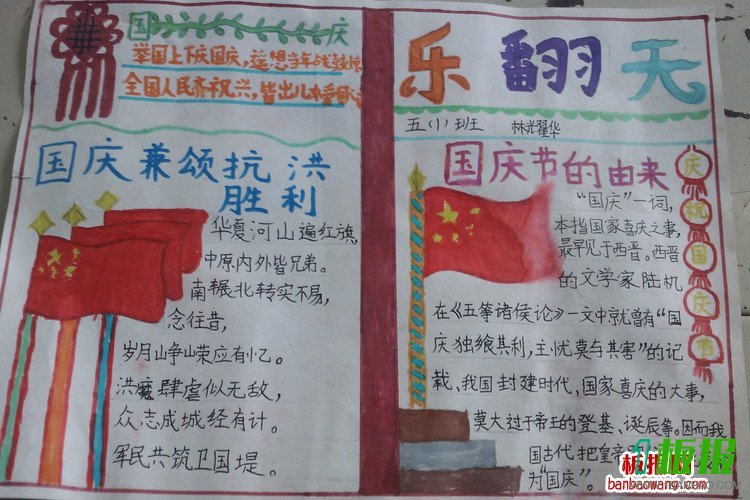 国
庆
举国上下庆国庆，遥想当年战
全国人民齐祝兴，皆出儿
国庆兼颂抗洪
胜利
华夏河山遍红旗，
中原内外皆兄弟。
南辗北转实不易，
念往昔，
岁月峥嵘荣应有忆。
洪魔肆虐似无敌，
众志成城经有计。
军民共筑卫国堤。
乐翻天
五(1)班 林光耀华
国庆节的由来
“国庆”一词，
本指国家喜庆之事，
最早见于西晋。西晋
的文学家陆机
在《五等诸侯论》一文中就曾有“国
庆独飨其利，主忧莫与其害”的记
载、我国封建时代，国家喜庆的大事，
莫大过于帝王的登基、诞辰等。因而我
国古代把皇帝
为“国庆”。
庆
祝
国
庆
节
板报
banbaowang.com